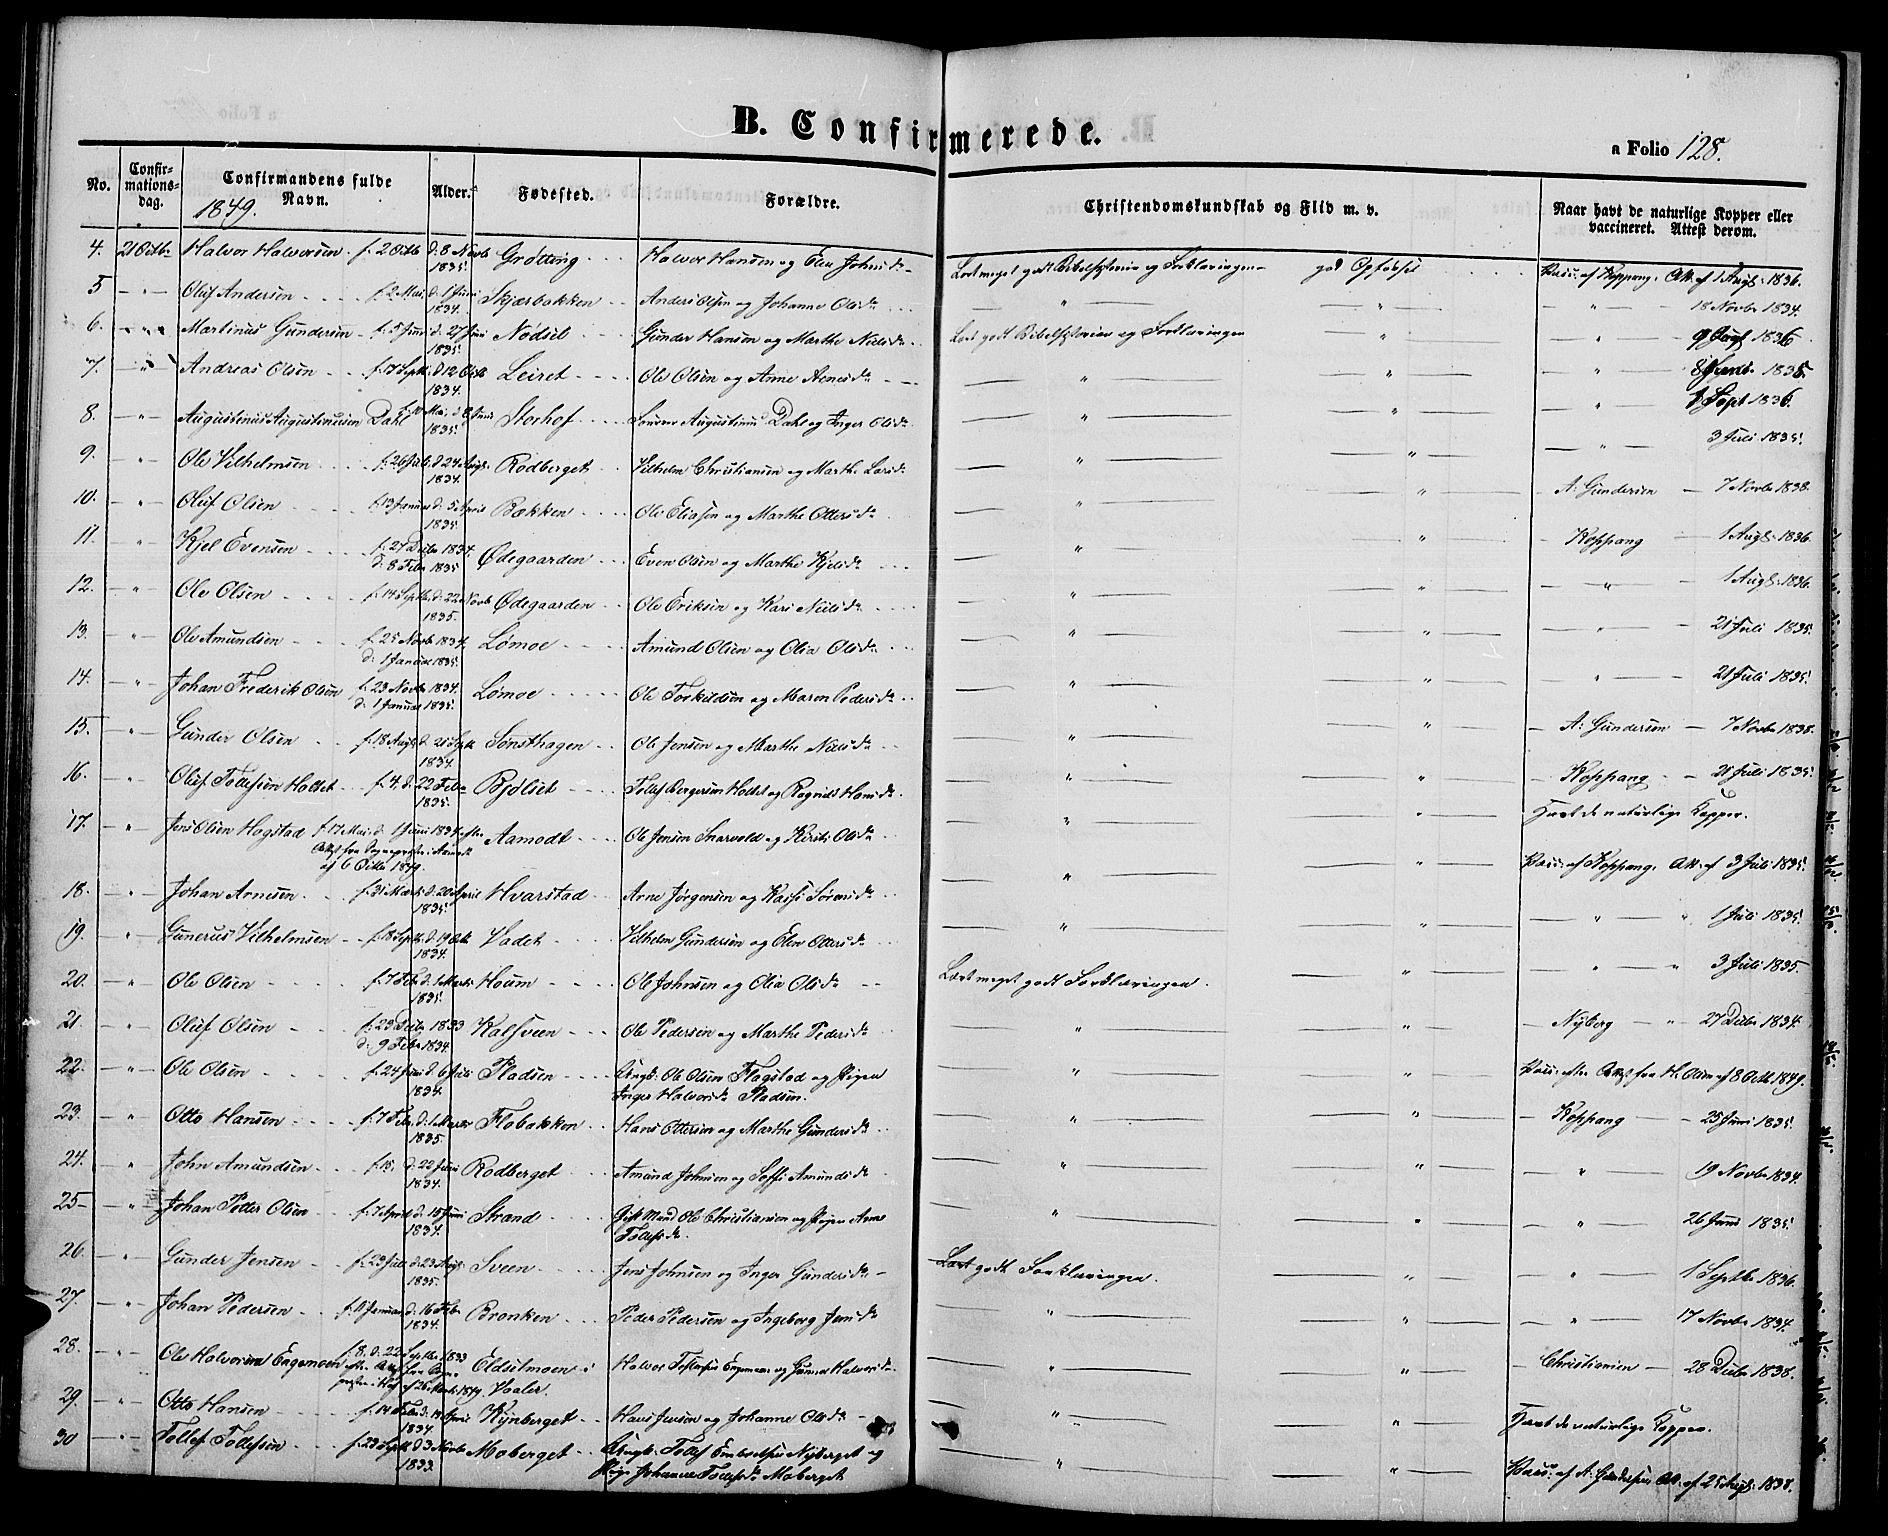 B. Confirmerede.
a Folio 128.
No. Confirmations-dag. Confirmandens fulde Navn. Alder. Fødested. Forældre. Christendomskundskab og Flid m. v. Naar havt de naturlige Kopper eller vaccineret. Attest derom.
1849.
4. 21 Octb. Halvor Halvorsen f. 2 Octb d. 8 Novb 1835. Grøtting Halvor Hansen og Eline Johnsda Lært meget godt Bibelhistorie og Forklaringen god Opførsel Vacc. af Koppang. Att. af 1 Augs. 1836.
5 " Oluf Andersen f. 2 Mai d. 1 Juni 1834. Skjærbakken Anders Olsen og Johanne Olsda " " " 18 Novb 1834.
6. " Martinus Gundersen f. 5 Juni d. 27 Juni 1835. Nødset Gunder Hansen og Marthe Nielsda Lært godt Bibelhistorie og Forklaringen " " 1836
7. " Andreas Olsen f. 17 Septb. d. 12 Octb 1834. Leiret Ole Olsen og Anne Arnesda " " " 1835.
8. " Augustenus Augustenusen Dahl Mai, d. 8 Juni 1835. Storhof Augustinus Dahl og Inger Olsda " " " Sept 1836.
9. " Ole Vilhelmsen f. 26 Juli d. 24 Augs. 1834. Rodberget Vilhelm Christiansen og Marthe Larsda " " " 3 Juli 1835.
10. " Oluf Olsen f. 13 Januar d. 5 April 1835. Bækken Ole Eliasen og Marthe Ottersda " " A. Gundersen 7 Novb 1838.
11. " Kjel Evensen f. 27 Decbr 1834. d. 8 Febr 1835 Ødegaarden Even Olsen og Marthe Kjelsda " " Koppang 1 Augs. 1836.
12. " Ole Olsen f. 14 Septb. d. 22 Novb 1835. Ødegaarden Ole Eriksen og Kari Nielsda " " " 1 Augs. 1836.
13. " Ole Amundsen f. 25 Novb 1834. d. 1 Januar 1835. Lømoe Amund Olsen og Olia Olsda " " " 21 Juli 1835.
14. " Johan Frederik Olsen f. 23 Novb 1834. d. 1 Januar 1835. Lømoe Ole Torkildsen og Maren Pedersda " " " 21 Juli 1835.
15. " Gunder Olsen f. 18 Augs d. 21 Septb 1834. Sønsthagen Ole Jensen og Marthe Nielsda " " A. Gundersen 7 Novb 1838.
16. " Oluf Tollefsen Holtet f. 4, d. 22 Febr 1835. Bjølset Tollef Bergersen Holtet og Ragnild Hansda " " Koppang 21 Juli 1835.
17. " Jens Olsen Hogstad f. 17 Mai d. 1 Juni 1834 efter Attest fra Sognepræsten i Aamodt af 6 Octbr 1849. Aamodt Ole Jensen Snarvold og Kersti Olsda " " Havt de naturlige Kopper.
18. " Johan Arnesen f. 31 Marts d. 20 April 1835. Hvarstad Arne Jørgensen og Kaisi Sørensda " " Vacc. af Koppang. Att. af 3 Juli 1835.
19. " Gunerus Vilhelmsen f. 18 Septb. d. 19 Octb. 1834. Vadet Vilhelm Gundersen og Elen Ottersda " " " " 1 Juli 1835.
20. " Ole Olsen f. 7 Feb. d. 1 Marts 1835. Houm Ole Johnsen og Olia Olsda Lært meget godt Forklaringen. " " " 3 Juli 1835.
21. " Oluf Olsen f. 23 Decbr 1833 d. 9 Febr 1834. Kalsveen Ole Pedersen og Marthe Pedersda " " Nyborg " 27 Decbr 1834.
22. " Ole Olsen f. 24 Juni d. 6 Juli 1834. Pladsen Ungk: Ole Olsen Flagstad og Pigen Inger Halvorsda Pladsen. " " Vacc. efter Attest fra H. Olsen af 8 Octb. 1849.
23. " Otto Hansen f. 7 Febr. d. 1 Marts 1835. Flobakken Hans Ottersen og Marthe Gundersda " " Koppang 25 Juni 1835.
24. " John Amundsen f. 15. d. 22 Juni 1834. Rodberget Amund Johnsen og Soffi Amundsda " " " 19 Novb 1834.
25 " Johan Petter Olsen f. 7 April d. 15 Juni 1834. Strand Gift Mand Ole Christiansen og Pigen Anne Tollefsda. " " " 26 Juni 1835.
26. " Gunder Jensen f. 23 Juli d. 23 Augs 1835. Sveen Jens Johnsen og Inger Gundersda Lært godt Forklaringen. " " 1 Septb 1836.
27. " Johan Pedersen Januar d. 16 Feb. 1834. Bronken Peder Pedersen og Ingeborg Jensda " " " 17 Novb 1834.
28. " Ole Halvorsen Engemoen f. 8. d. 22 Septbr 1833 efter Attest fra Sogne-præsten i Hof af 26 Marts 1849. Eldsetmoen i Vaaler. Halvor Engemoen og Gunnor Halvorsda " " Christiansen 28 Decbr 1838.
29. " Otto Hansen f. 14 Febr. d. April 1834. Kynberget Hans Jensen og Johanne Olsda " " Havt de naturlige Kopper.
30 " Tollef Tollefsen f. 23 Septb d. 3 Novbr 1833. Moberget Ungk: Tollef Embretsen Nyberget og Pige Johanne Tollefsda Moberget " " Vacc. af A. Gundersen Att. af 25 Augs. 1838.